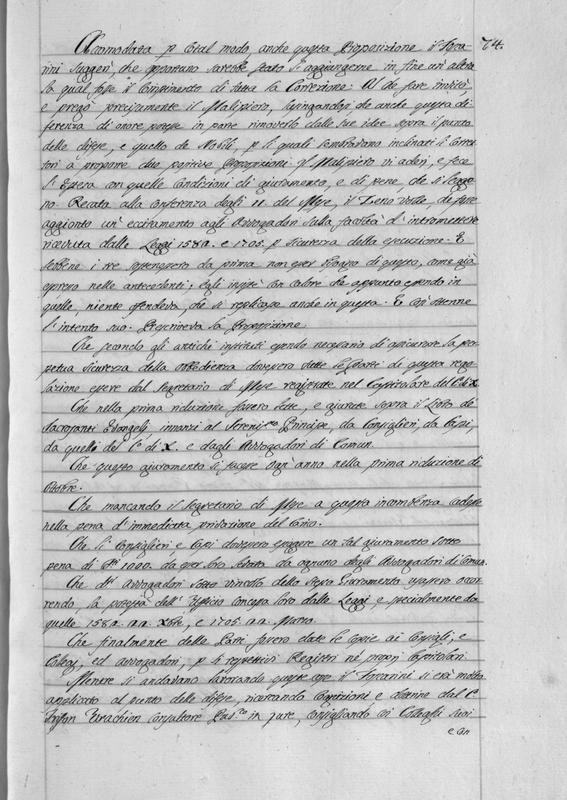 74.
Accomodata p cotal modo anche questa Proposizione il Fosca-
rini suggerì, che opportuno sarebbe stato l'aggiungerne in fine un'altra
la qual fosse il compimento di tutta la Correzione: Al che fare invitò
e pregò precisamente il Malipiero, lusingandosi che anche questa di
ferenza di onore potesse in parte rimoverlo dalle sue idee sopra il punto
delle difese, e quello de Nobili, p li quali sembravano inclinati li Corret
tori a proporre due Proposizioni. Il Malipiero vi aderì, e fece
l'opera con quelle condizioni di giuramento, e di pene, che si leggo
no. Recata alla conferenza degli 11. del Mese, il Zeno volle, che fosse
aggionto un'eccitamento agli Avvogadori sulla facoltà d'intromettere
ricevuta dalle Leggi 1582. e 1705. p sicurezza della esecuzione. E
sebbene i tre sostenessero da prima non esser bisogno di questo, come già
espresso nelle antecedenti; egli insistè con calore che appunto essendo in
quelle, niente offendeva, che si replicasse anche in questa. E così ottenne
l'intento suo. Prescriveva la Proposizione.
Che secondo gli antichi instituti essendo necessario di assicurare la per
petua sicurezza della obbedienza dovessero tutte le Parti di questa rego
lazione essere dal Segretario di Mese registrate nel Capitolare del C. di X.
Che nella prima riduzione fossero lette, e giurate sopra il Libro de
Sacrosanti Evangelj innanzi al Sereniss.mo Principe, da Consiglieri, da Capi,
da quelli del C.o di X. e dagli Avvogadori di Comun.
Che questo giuramento si facesse ogn'anno nella prima riduzione di
Ottobre.
Che mancando il Segretario di Mese a questa incombenza cadesse
nella pena d'immediata privazione del Carico.
Che li Consiglieri e Capi dovessero esigere un tal giuramento sotto
pena di D.ti 1000. da esser loro tolta da ognuno degli Avvogadori di Comun.
Che d.ti Avvogadori sotto vincolo dello stesso Giuramento usassero occor
rendo, la potestà dell'Uffizio concessa loro dalle Leggi, e specialmente da
quelle 1582. a.a. Xbre, e 1705. a.a. Marzo.
Che finalmente delle Parti fossero date le copie ai Consigli, e
Collegj, ed Avvogadori, p li respettivi Registri nè proprj Capitolari.
Mentre si andavano lavorando queste cose il Foscarini si era molto
applicato al punto delle difese, ricercando cognizioni e dottrine dal C.e
Trifon Vrachien Consultore Pub.co in Jure, consigliando coi Colleghi suoi
e con